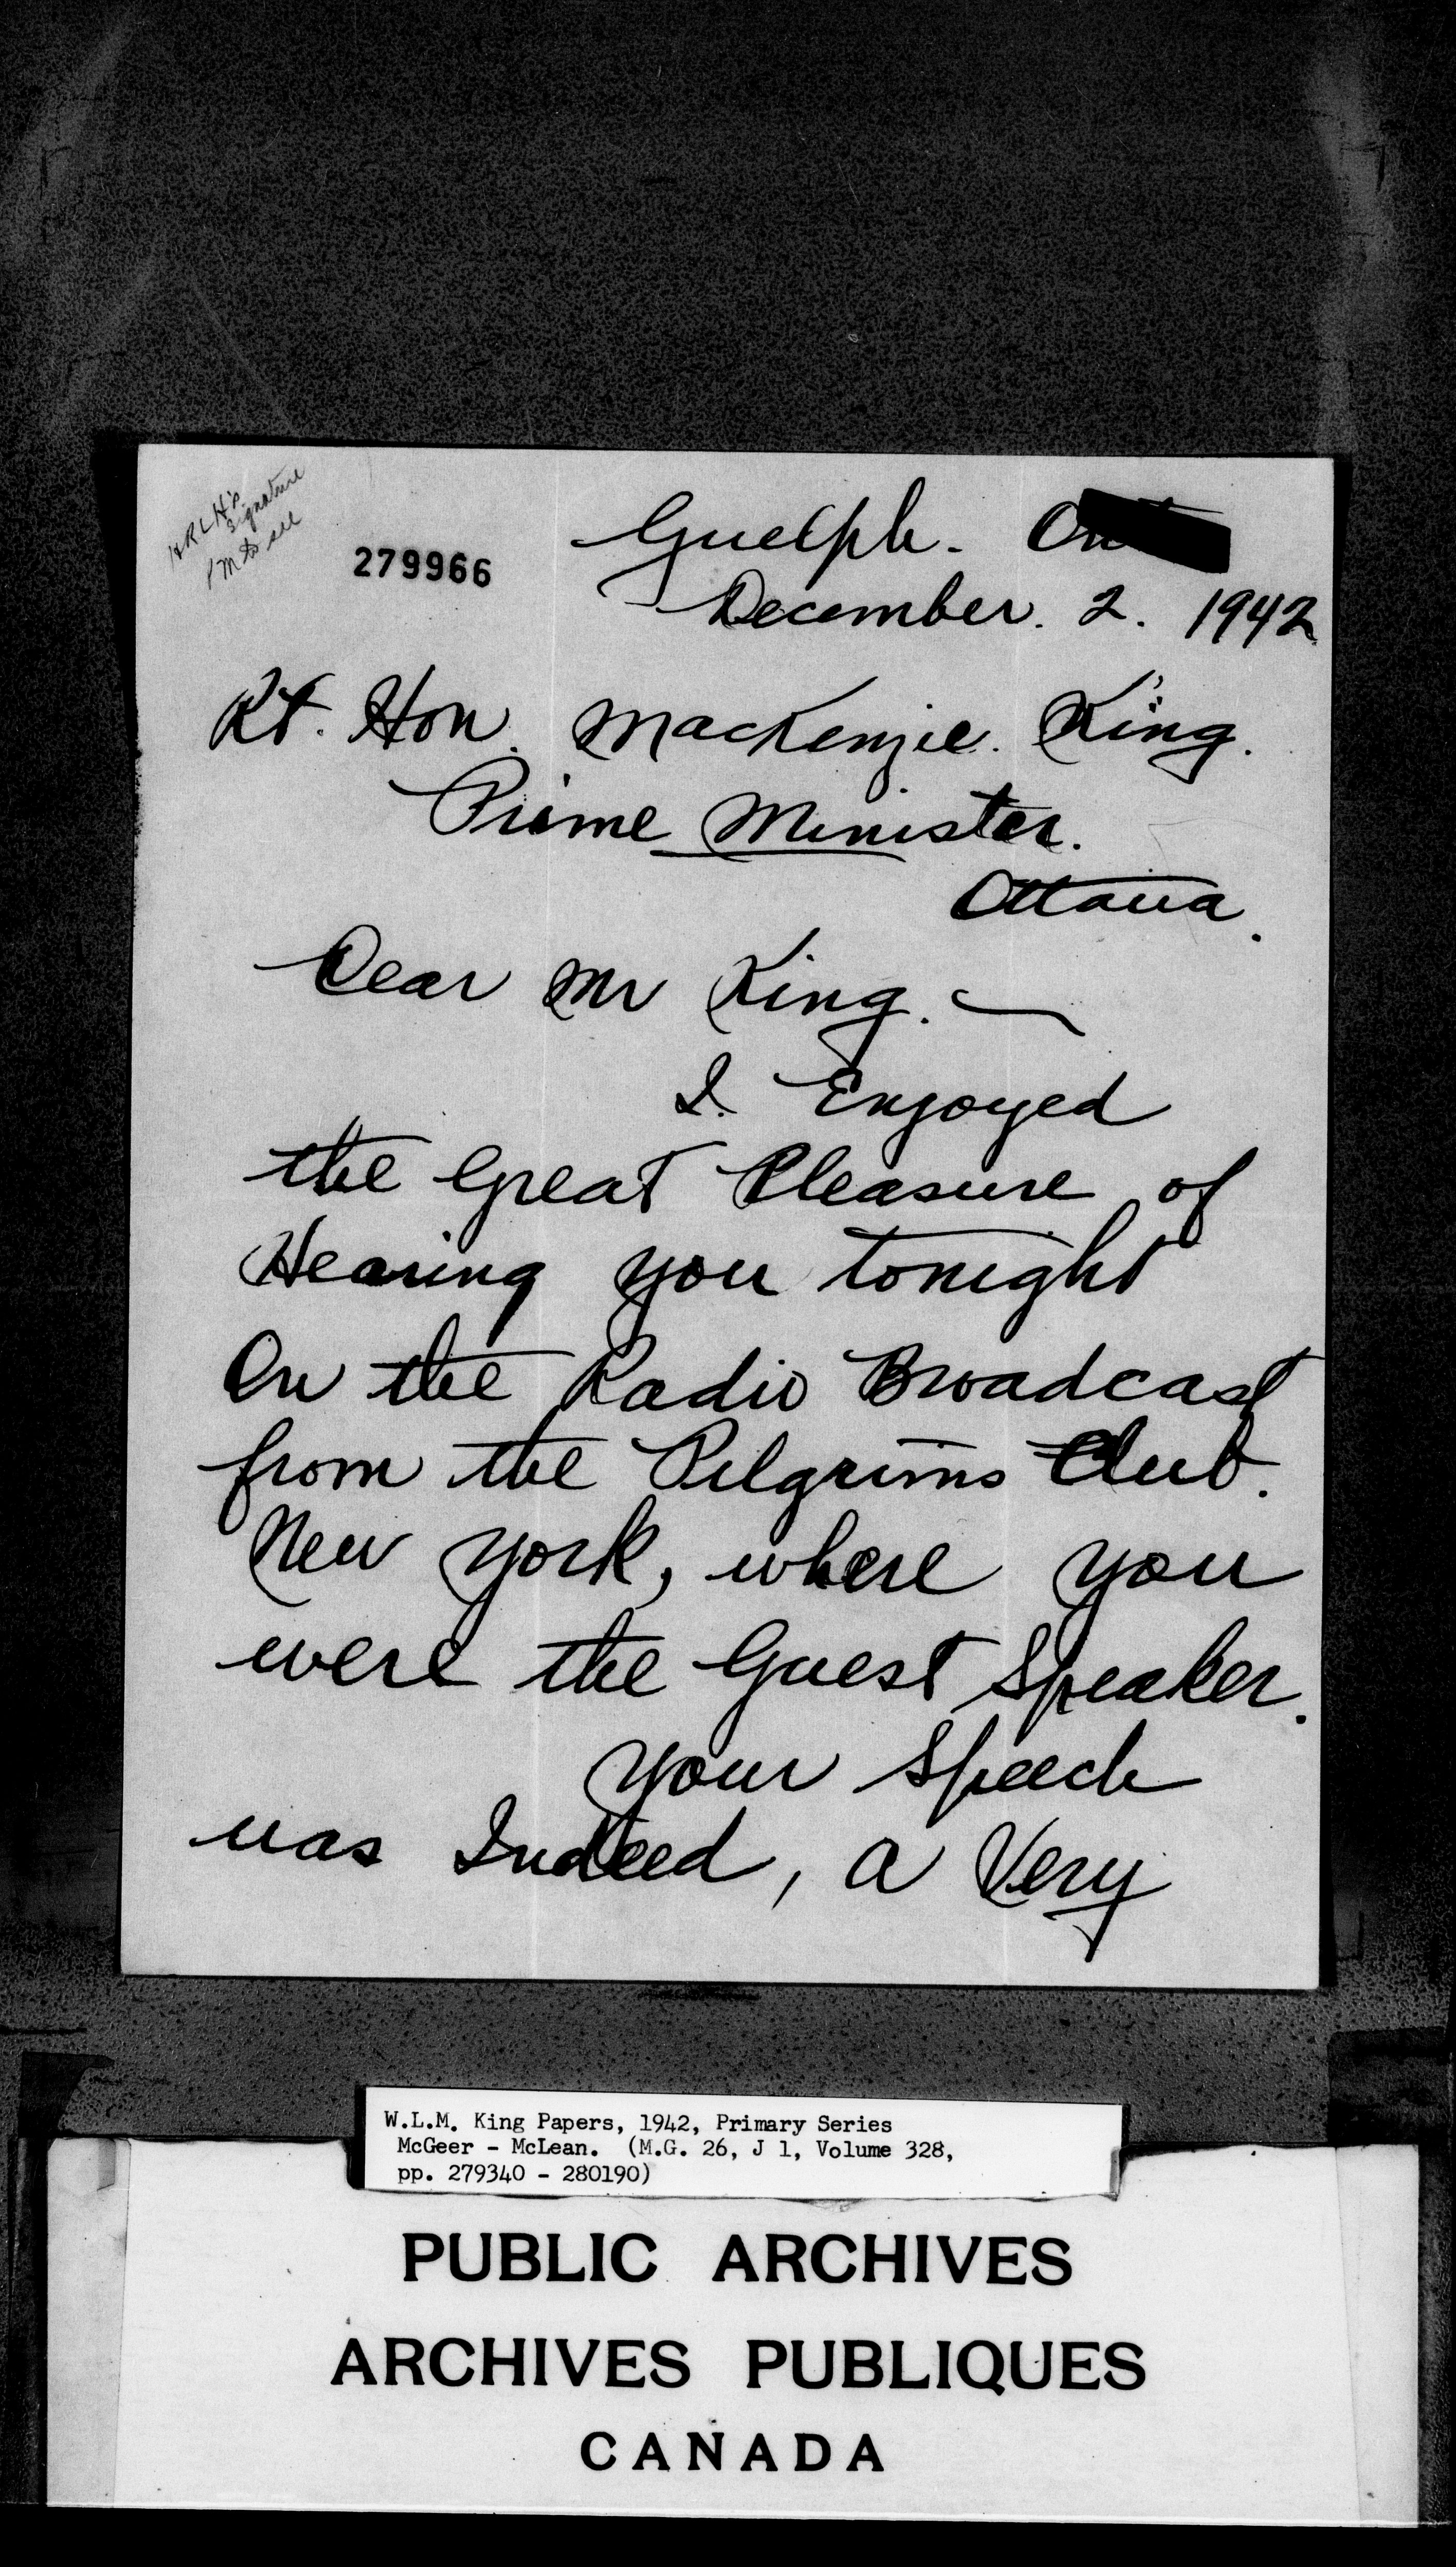 HRLH's
signature
PM to see
279966
Guelph. Ont
December. 2. 1942
Rt. Hon. MacKenzie. King.
Prime Minister.
Ottawa.
Dear Mr King. —
I. Enjoyed
the Great Pleasure of
Hearing you tonight
On the Radio Broadcast
from the Pilgrims Club.
New York, where you
were the Guest Speaker.
Your Speech
was Indeed, a Very
W.L.M. King Papers, 1942, Primary Series
McGeer - McLean. (M.G. 26, J 1, Volume 328,
pp. 279340 - 280190)
PUBLIC ARCHIVES
ARCHIVES PUBLIQUES
CANADA